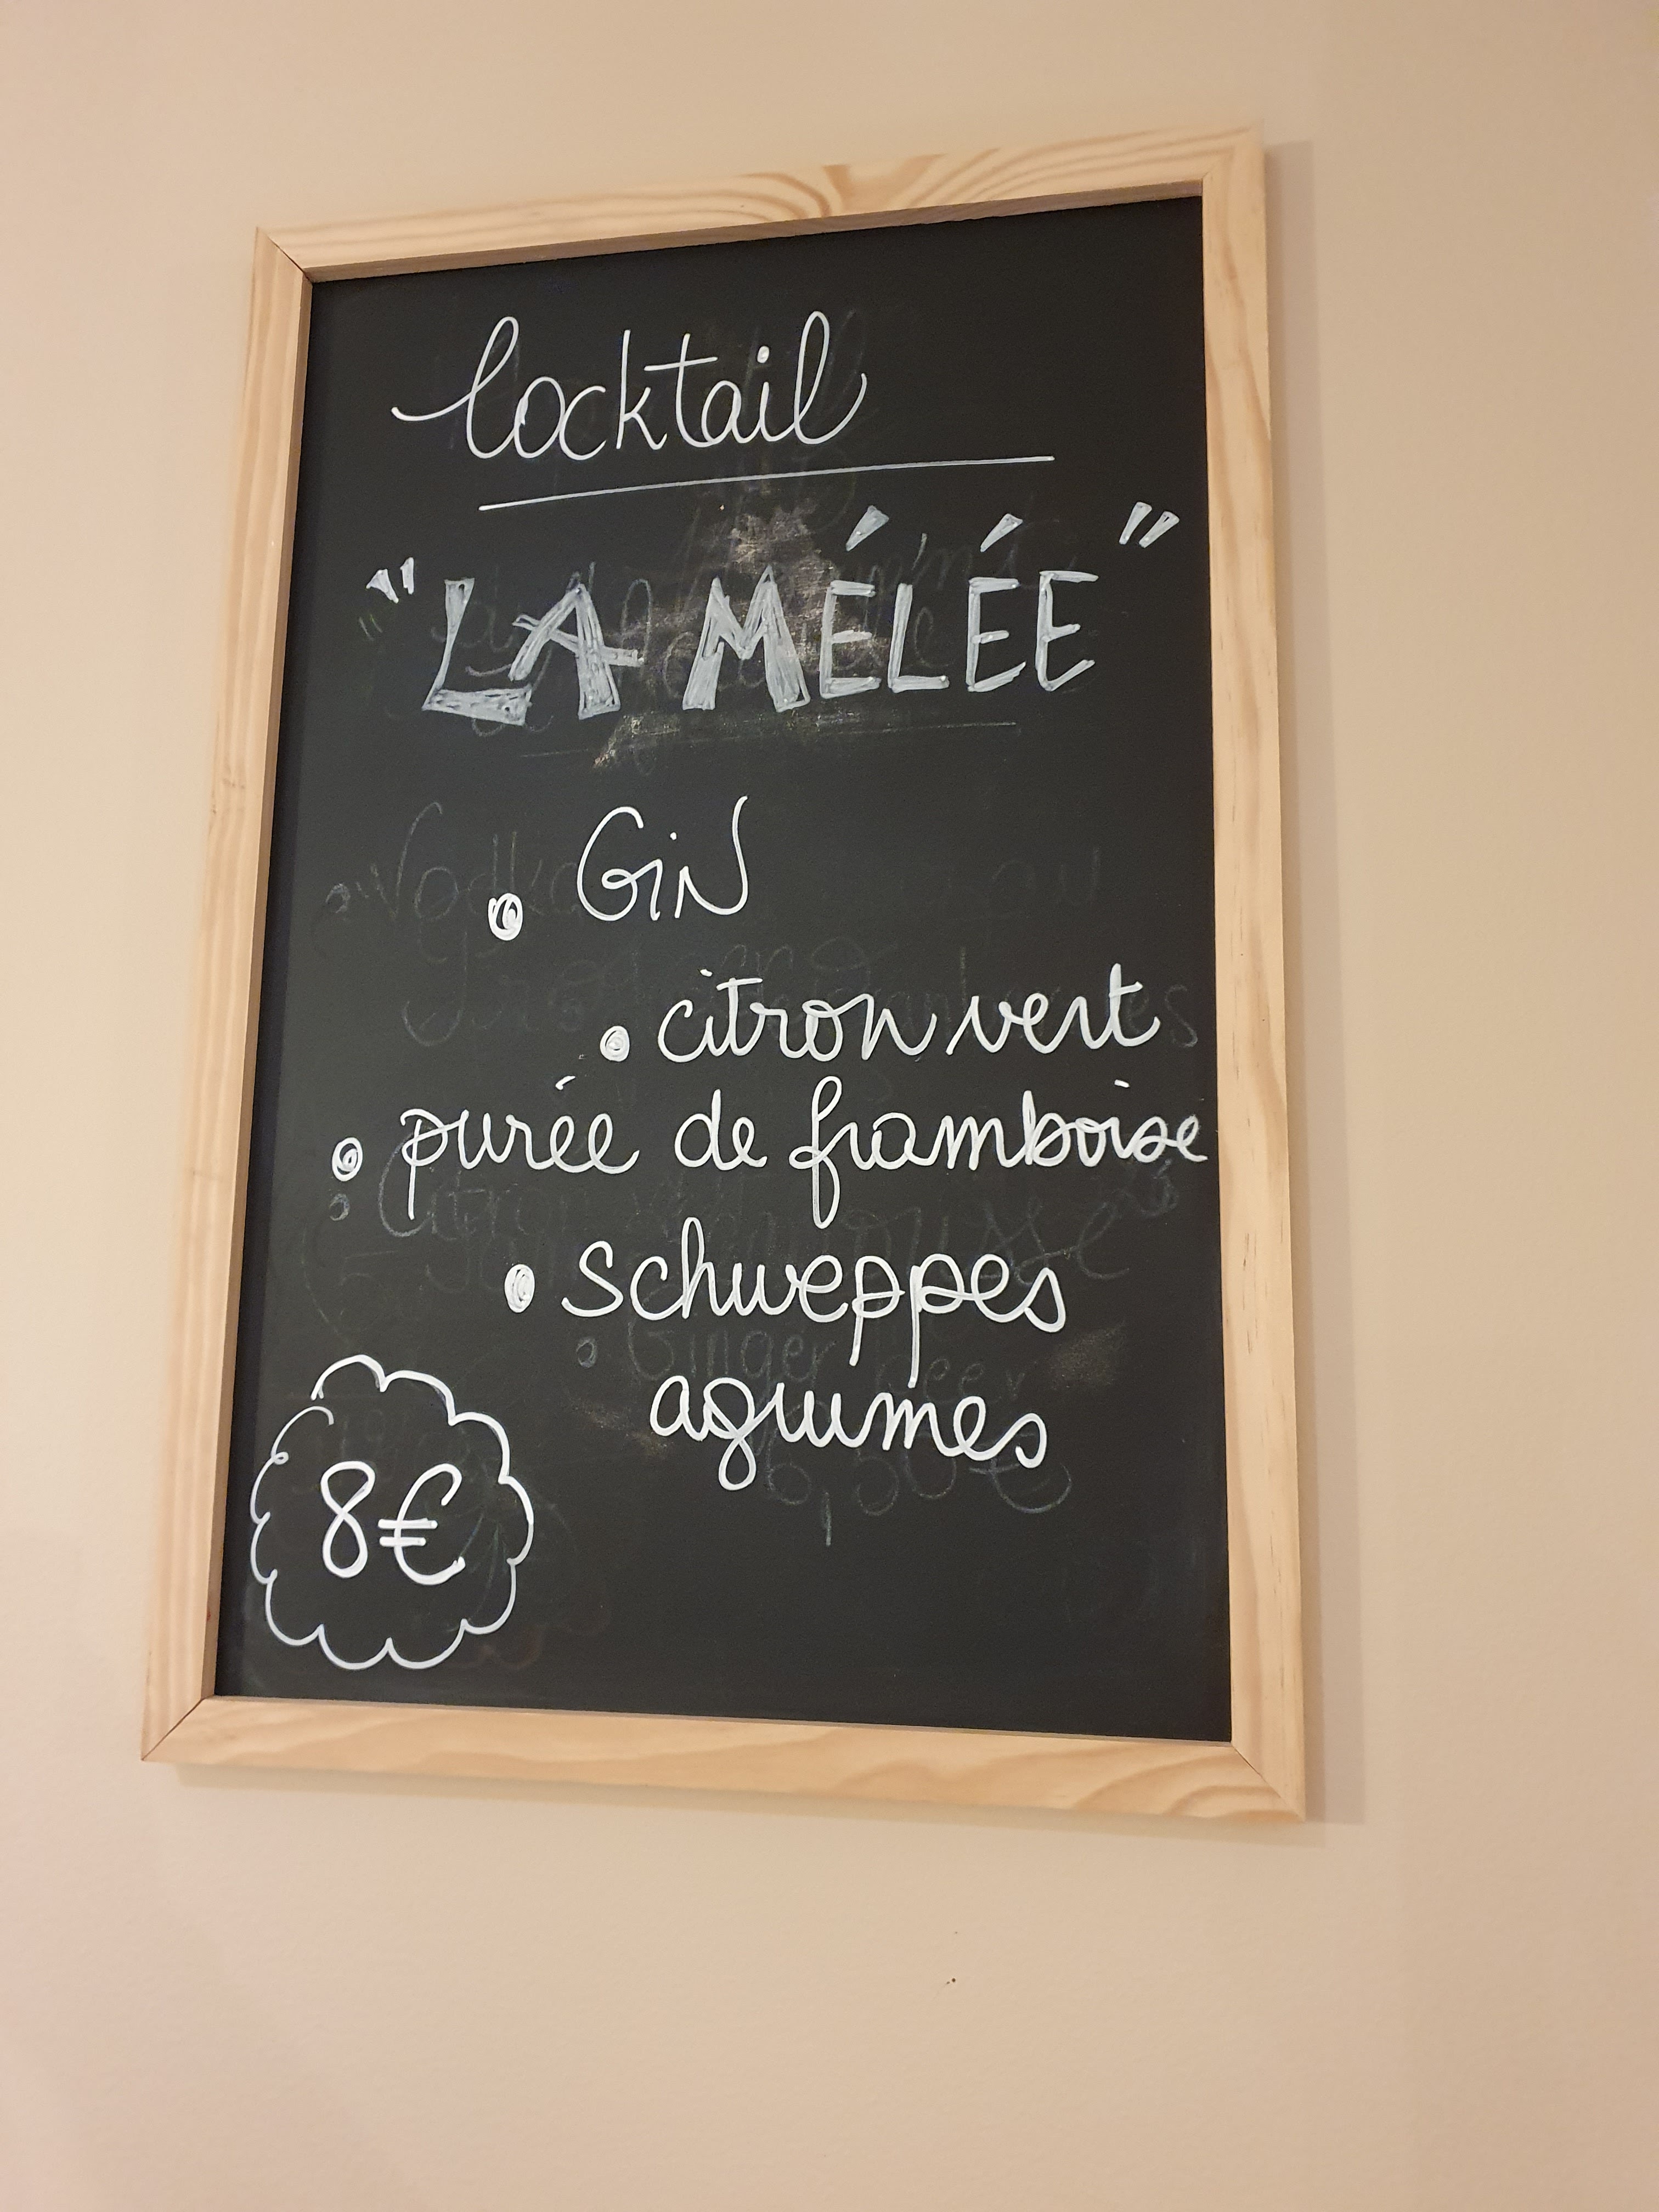 Cocktail
"LA MÉLÉE"
• GiN
• citron vert
• purée de framboise
• Schweppes
agrumes
8€